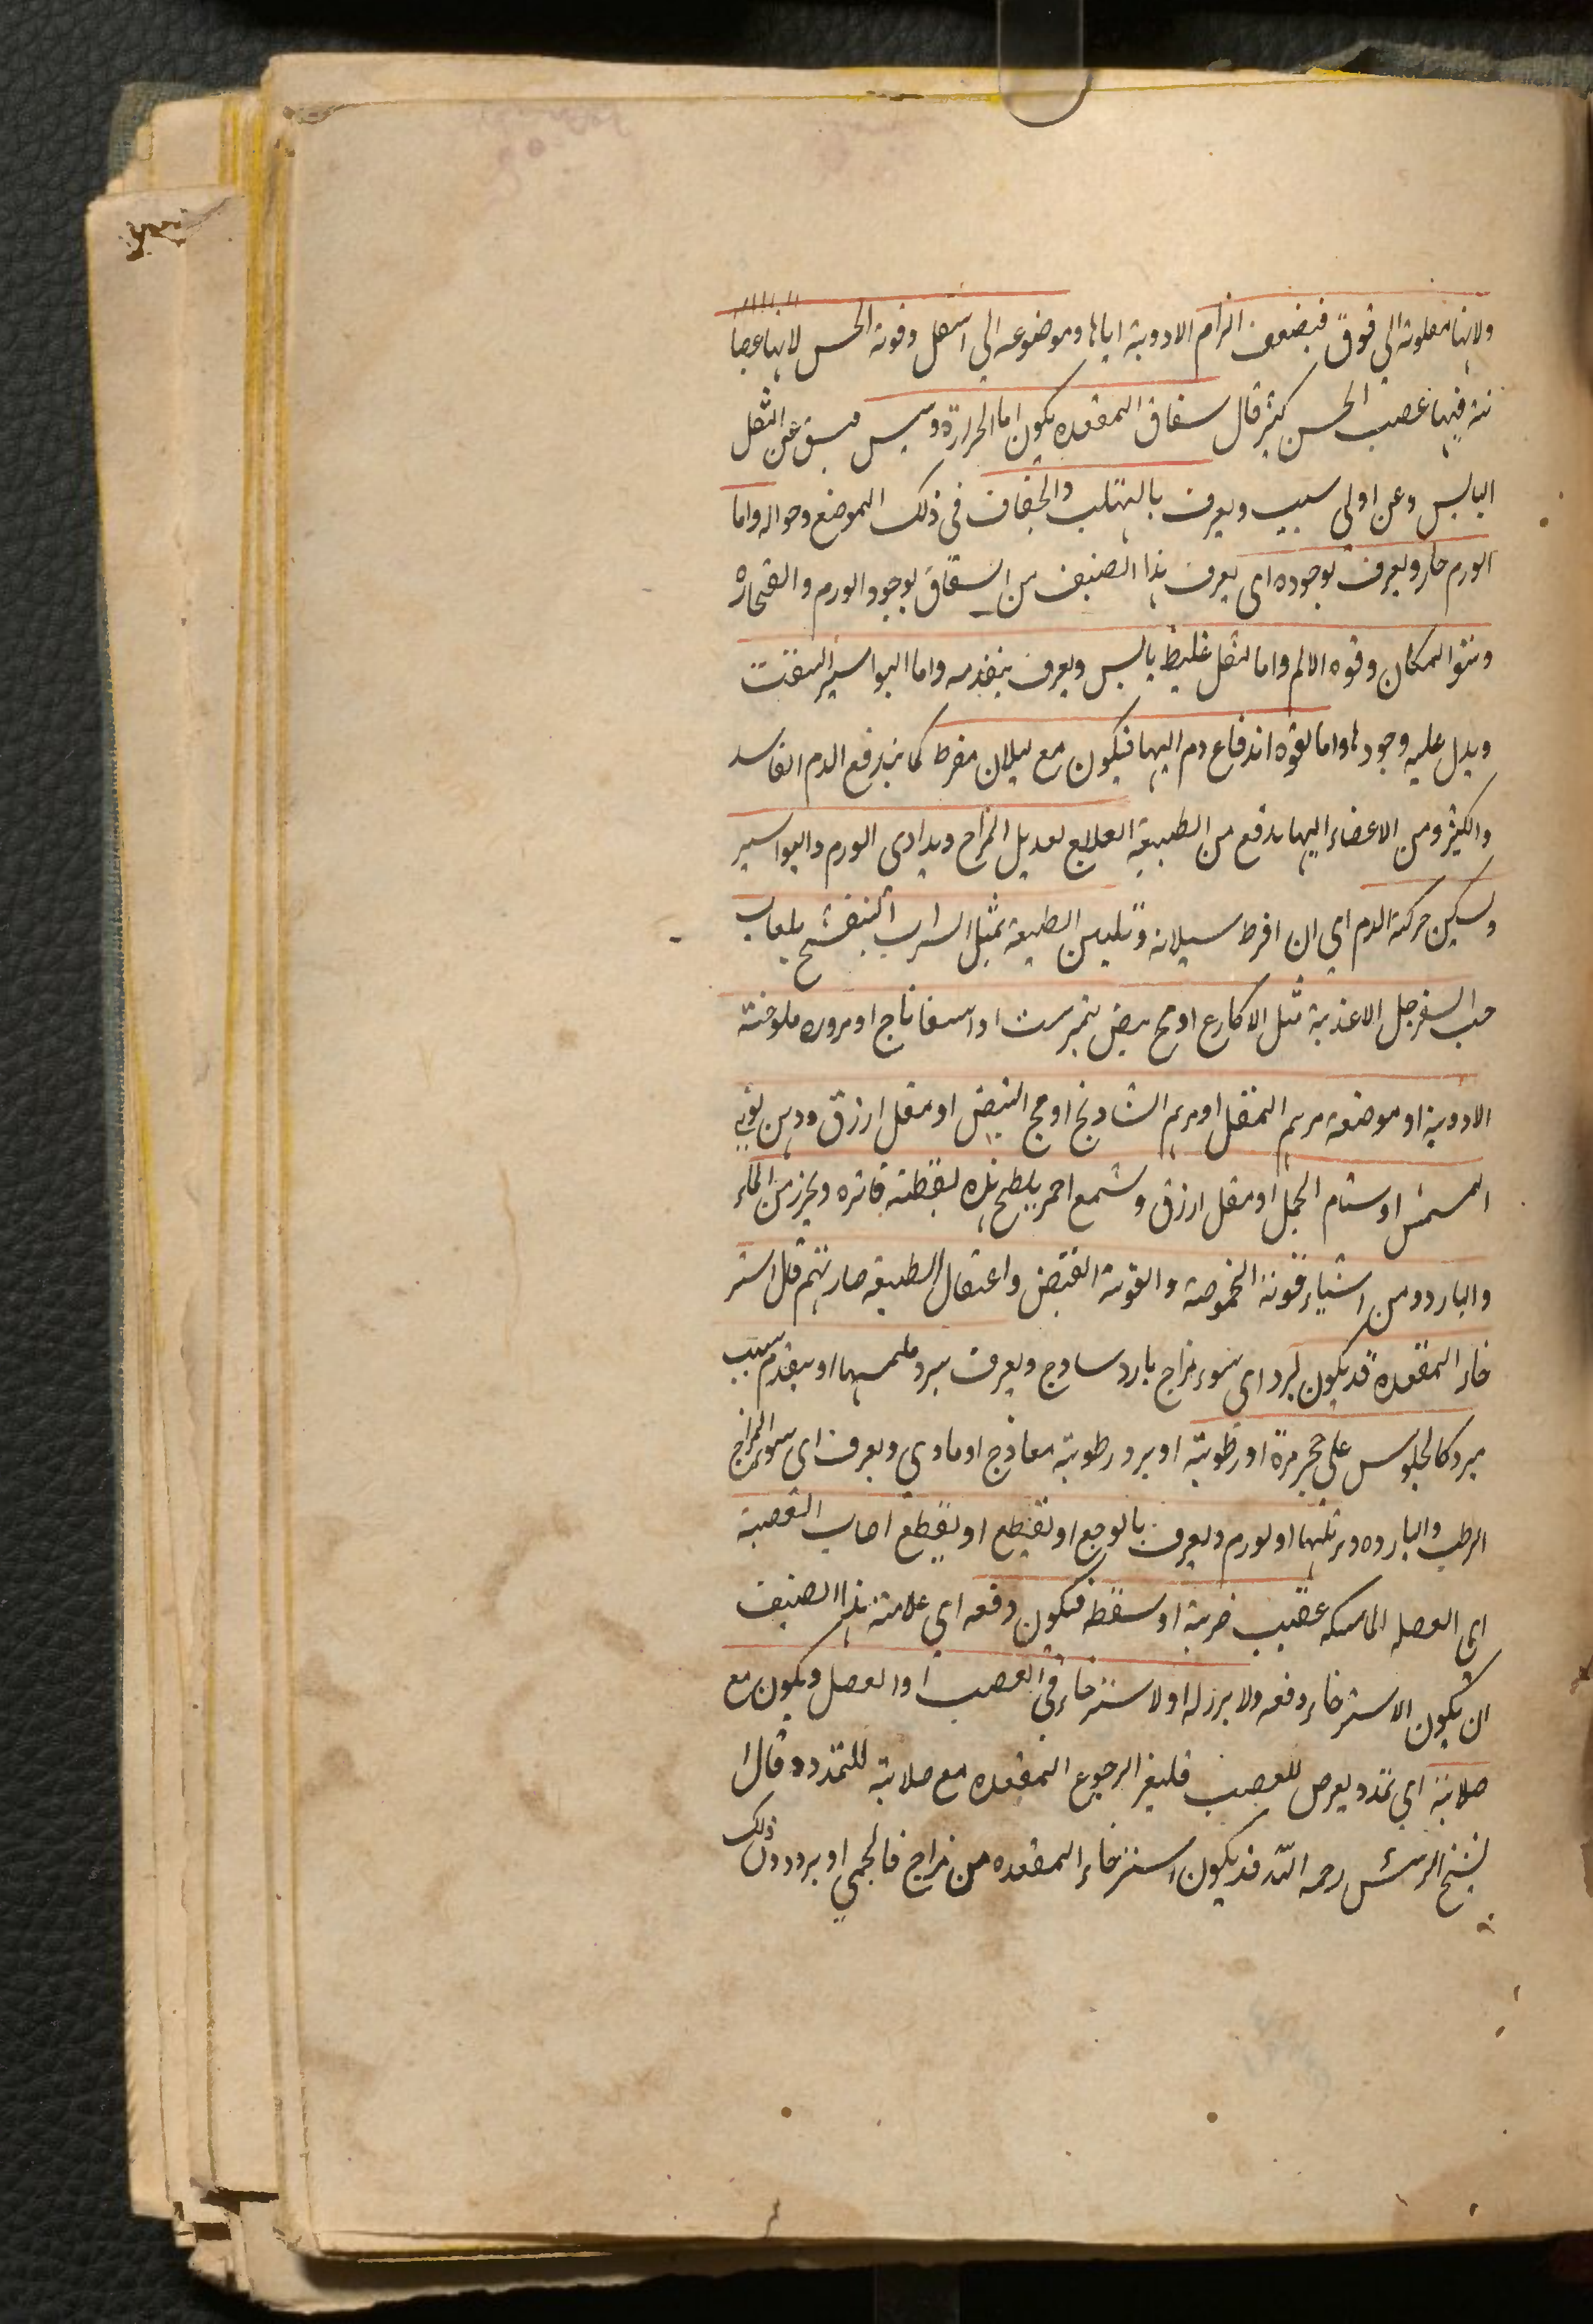 ولانها مقلوبة الى فوق فيضعف الزام الادوية اياها وموضوعه الى اسفل وقوة الحس لانها عصبا
نية فيها عصب الحس كثير قال سقاق المقعده يكون اما لحرارة ويبس عن الثقل
اليابس وعن اولى سبب ويعرف بالتهلب والجفاف فى ذلك الموضع وحواله واما
الورم حار ويعرف بوجوده اى يعرف هذا الصنف من السقاق بوجود الورم وانتفاخه
ونتو المكان وقوه الالم واما لثقل غليظ يابس ويعرف بتقدمه واما البواسير انفقت
ويدل عليه وجودها واما لقوه اندفاع دم اليها فيكون مع سيلان مفرط كما يندفع الدم الفاسد
والكثير ومن الاعضاء اليها بدفع من الطبيعة العلاج تعديل المزاج ويداوى الورم والبواسير
وتسكين حركة الدم اى ان افرط سيلانه وتليين الطبيعة بمثل الشراب البنفشج بلعاب
حب السفرجل الاغذية مثل الاكارع او مح بيض نيمبرست او اسفاناج او مزوره ملوخية
الادوية او موضعه مرهم المقل او مرهم الشادنج او مح البيض او مقل ازرق ودهن نوى
المشمش او سنام الجمل او مقل ازرق وشمع احمر يلطخ بذه بقطنة فاتره ويحرز من الماء
والبارد ومن اشياء قوية الحموضة والقوية القبض واعتقال الطبيعه صارتهم قال استر
خاء المقعده قد يكون لبرد اى سوء مزاج بارد ساوج ويعرف ببرد ملمسها او بتقدم سبب
مبرد كالجلوس على حجر مرة او رطوبة او برد ورطوبة معاذج او مادي ويعرف اى سوء المزاج
الرطب والبارده وترتلها او لورم ويعرف بالوجع او تقيطع او يقطع اصاب القصبة
اى العضله الماسكه عقيب ضربة او سقطه فيكون دفعه اى علامة هذا الصنف
ان يكون الاسترخاء دفعه ولا برز له او لاسترخاء فى العصب او العضل ويكون مع
صلابة اى تمدد يعرض للعصب فليغر الرجوع المقعده مع صلابة للتمدد وقال ا
لشيخ الرئس رحمه الله قد يكون استرخاء المقعده من مزاج فالجمي او برد ودل ذلك